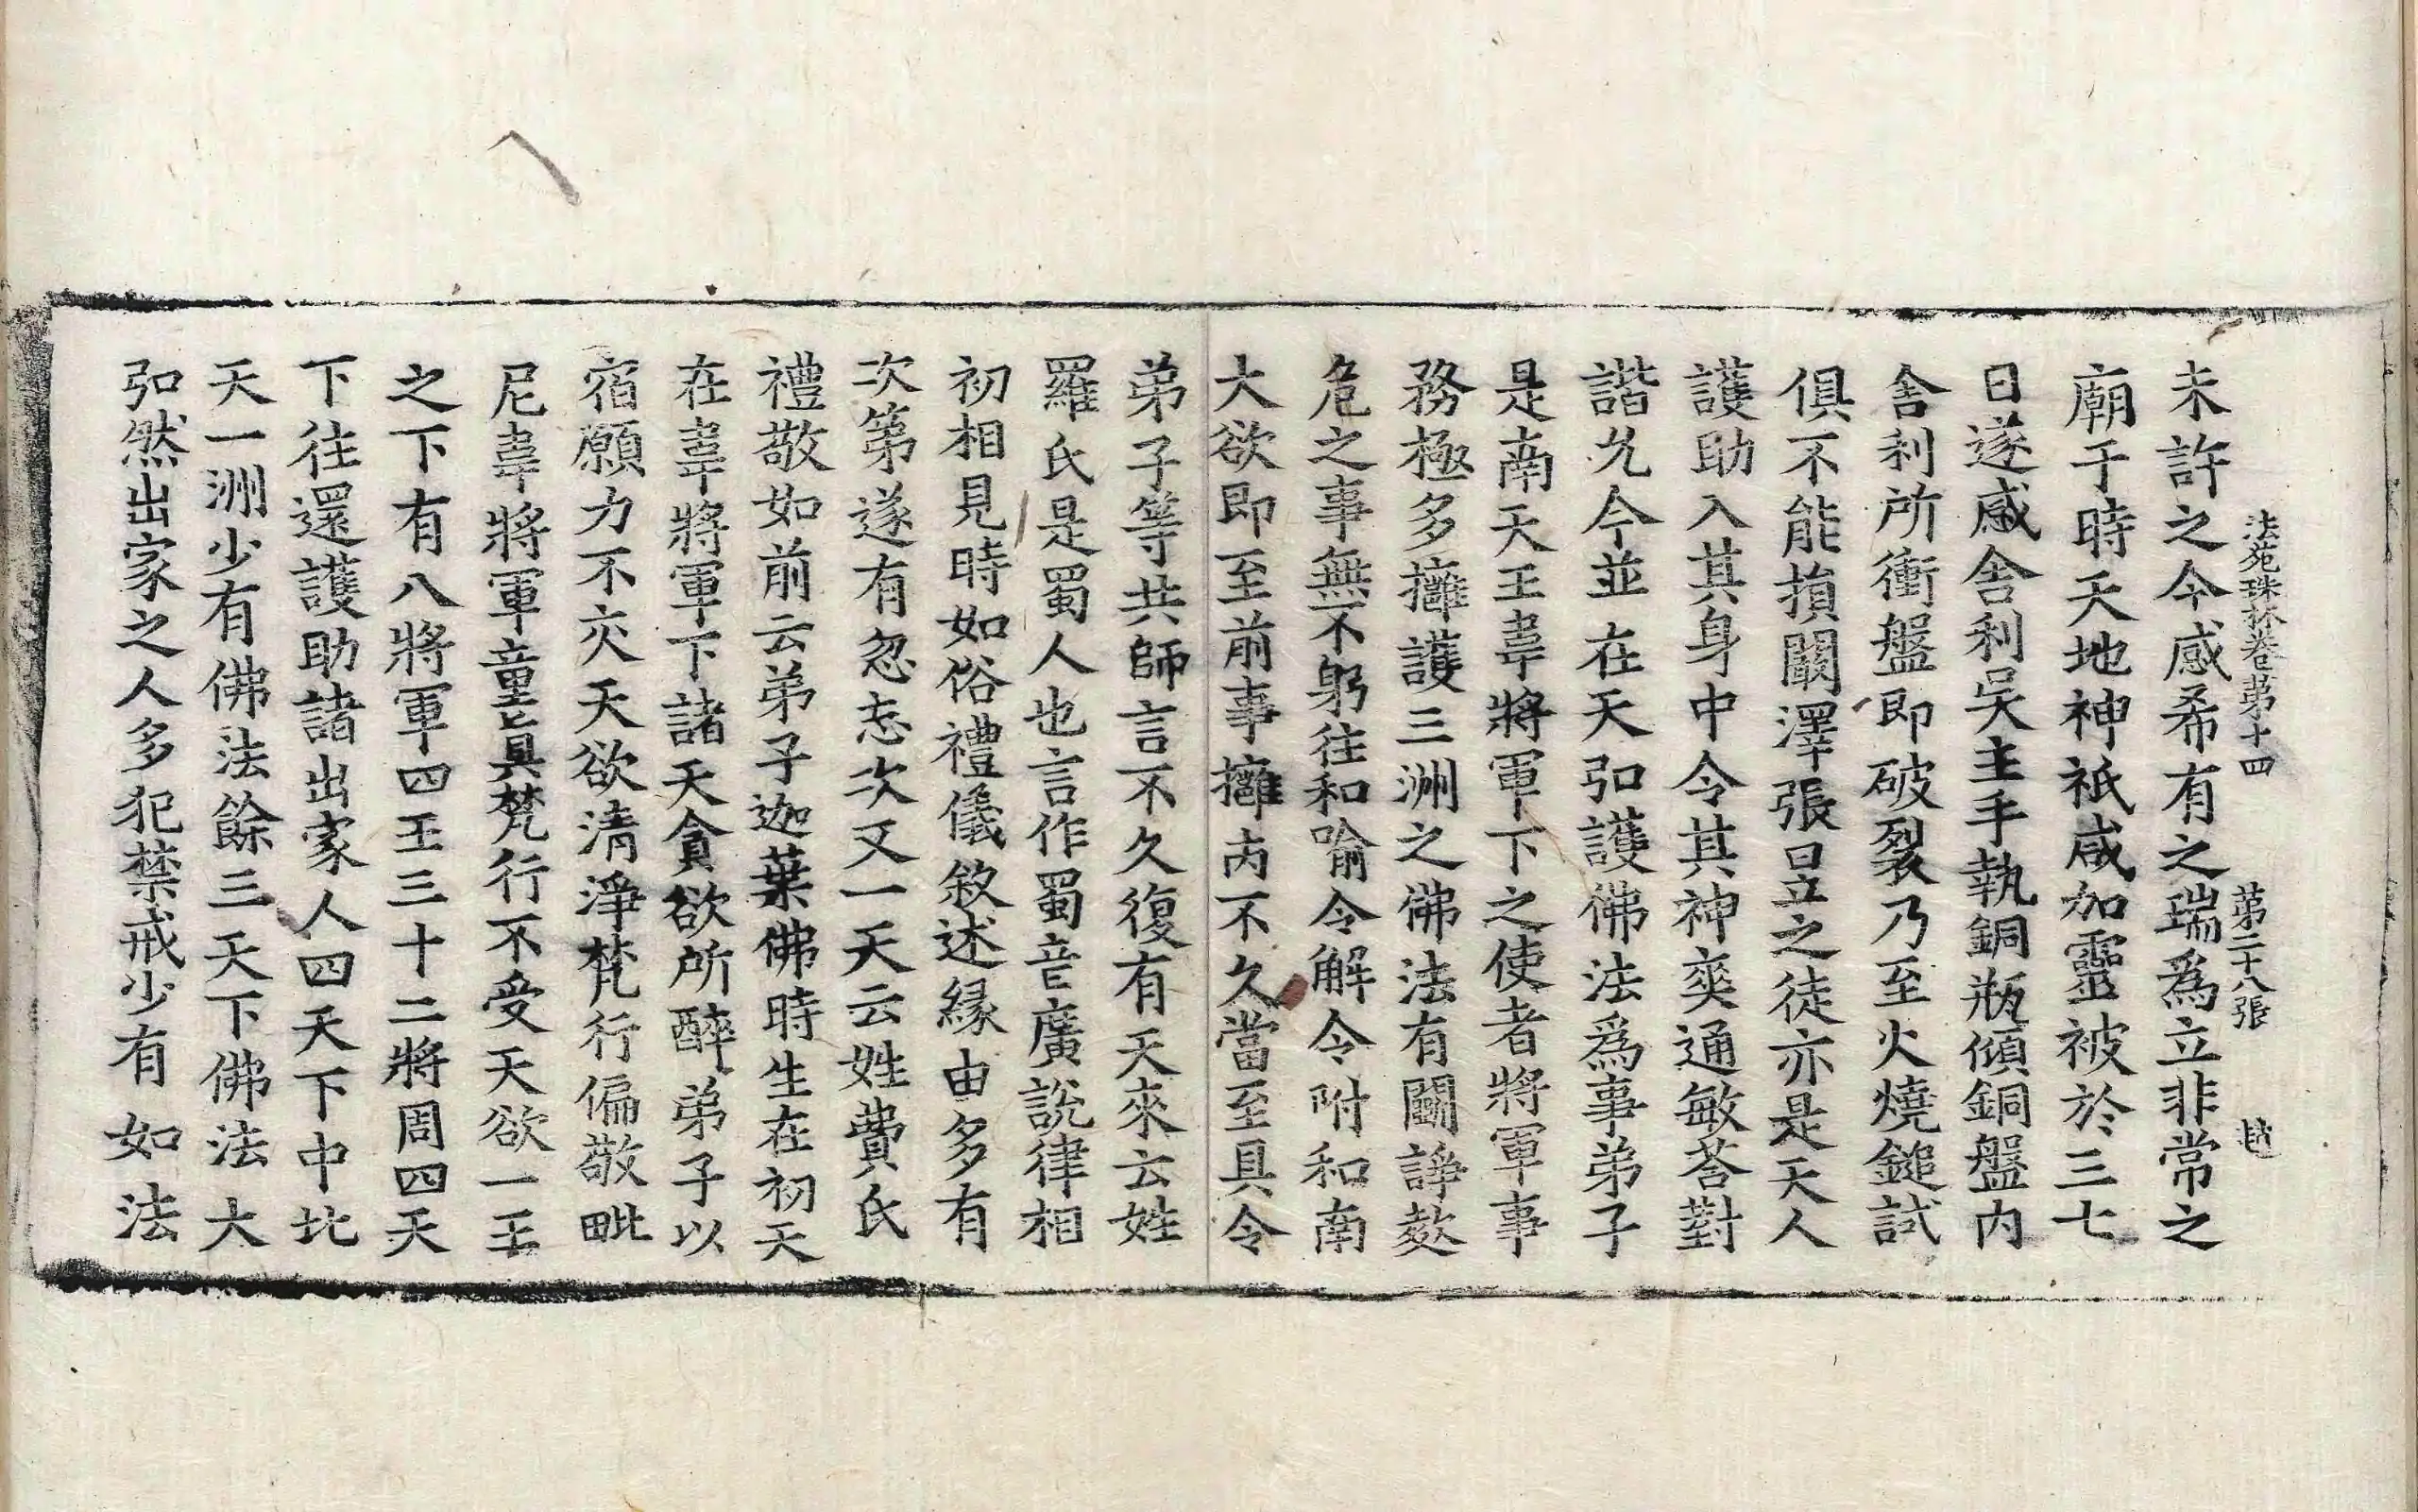 法苑珠林卷苐十四 苐二十八張 㷠
未許之今感希有之瑞爲立非常之
廟于時天地神祇咸加靈被於三七
日遂感舍利吳主手執銅瓶傾銅盤内
舎利所衝盤即破裂乃至火燒鎚試
俱不能損闞澤張昱之徒亦是天人
護助入其身中令其神奕通敏荅對
諧允今並在天弘護佛法爲事弟子
是南天王韋將軍下之使者將軍事
務極多擁護三洲之佛法有鬬諍𣣋
危之事無不躬往和喻令解令附和南
大欲即至前事擁内不久當至具令
弟子等共師言不久復有天來云姓
羅氏是蜀人也言作蜀音廣說律相
初相見時如俗禮儀敘述緣由多有
次第遂有忽忘次又一天云姓費氏
禮敬如前云弟子迦葉佛時生在初天
在韋將軍下諸天貪欲所醉弟子以
宿願力不交天欲清淨梵行偏敬毗
尼韋將軍童真梵行不受天欲一王
之下有八將軍四王三十二將周四天
下往還護助諸出家人四天下中北
天一洲少有佛法餘三天下佛法大
弘然出家之人多犯禁戒少有如法